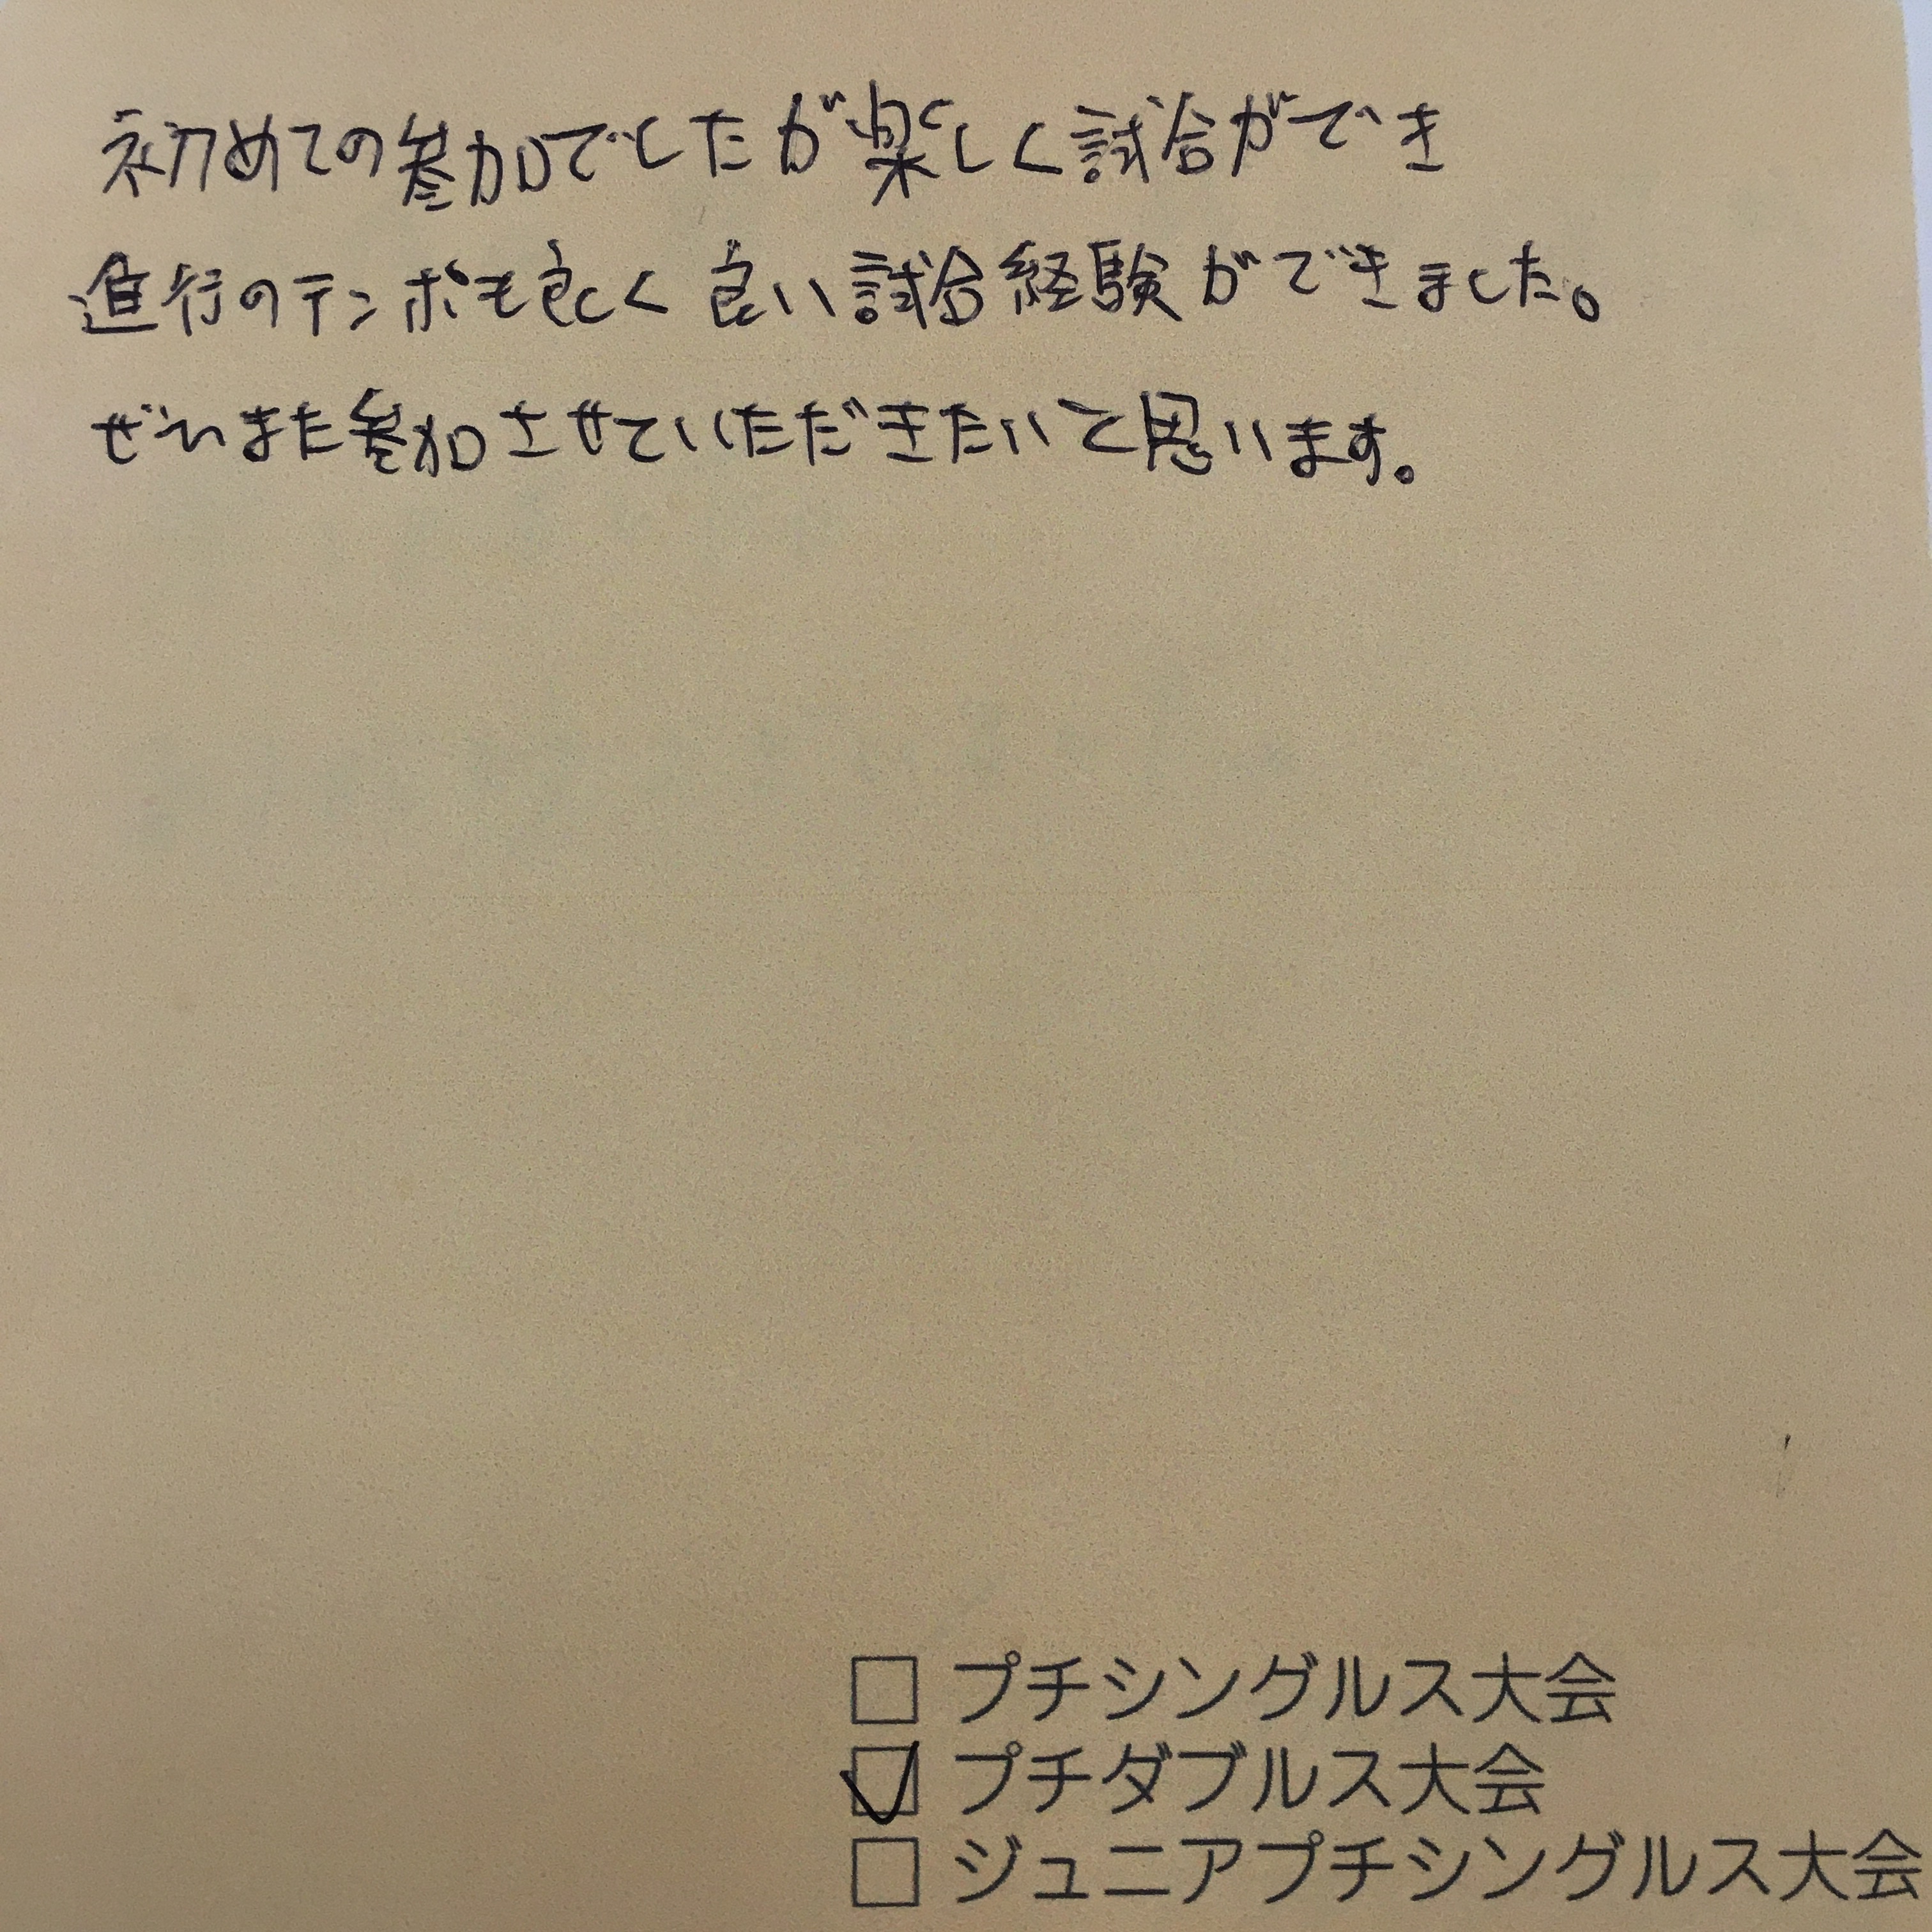 初めての参加でしたが楽しく試合ができ
進行のテンポも良く良い試合経験ができました。
ぜひまた参加させていただきたいと思います。
□ プチシングルス大会
☑ プチダブルス大会
□ ジュニアプチシングルス大会